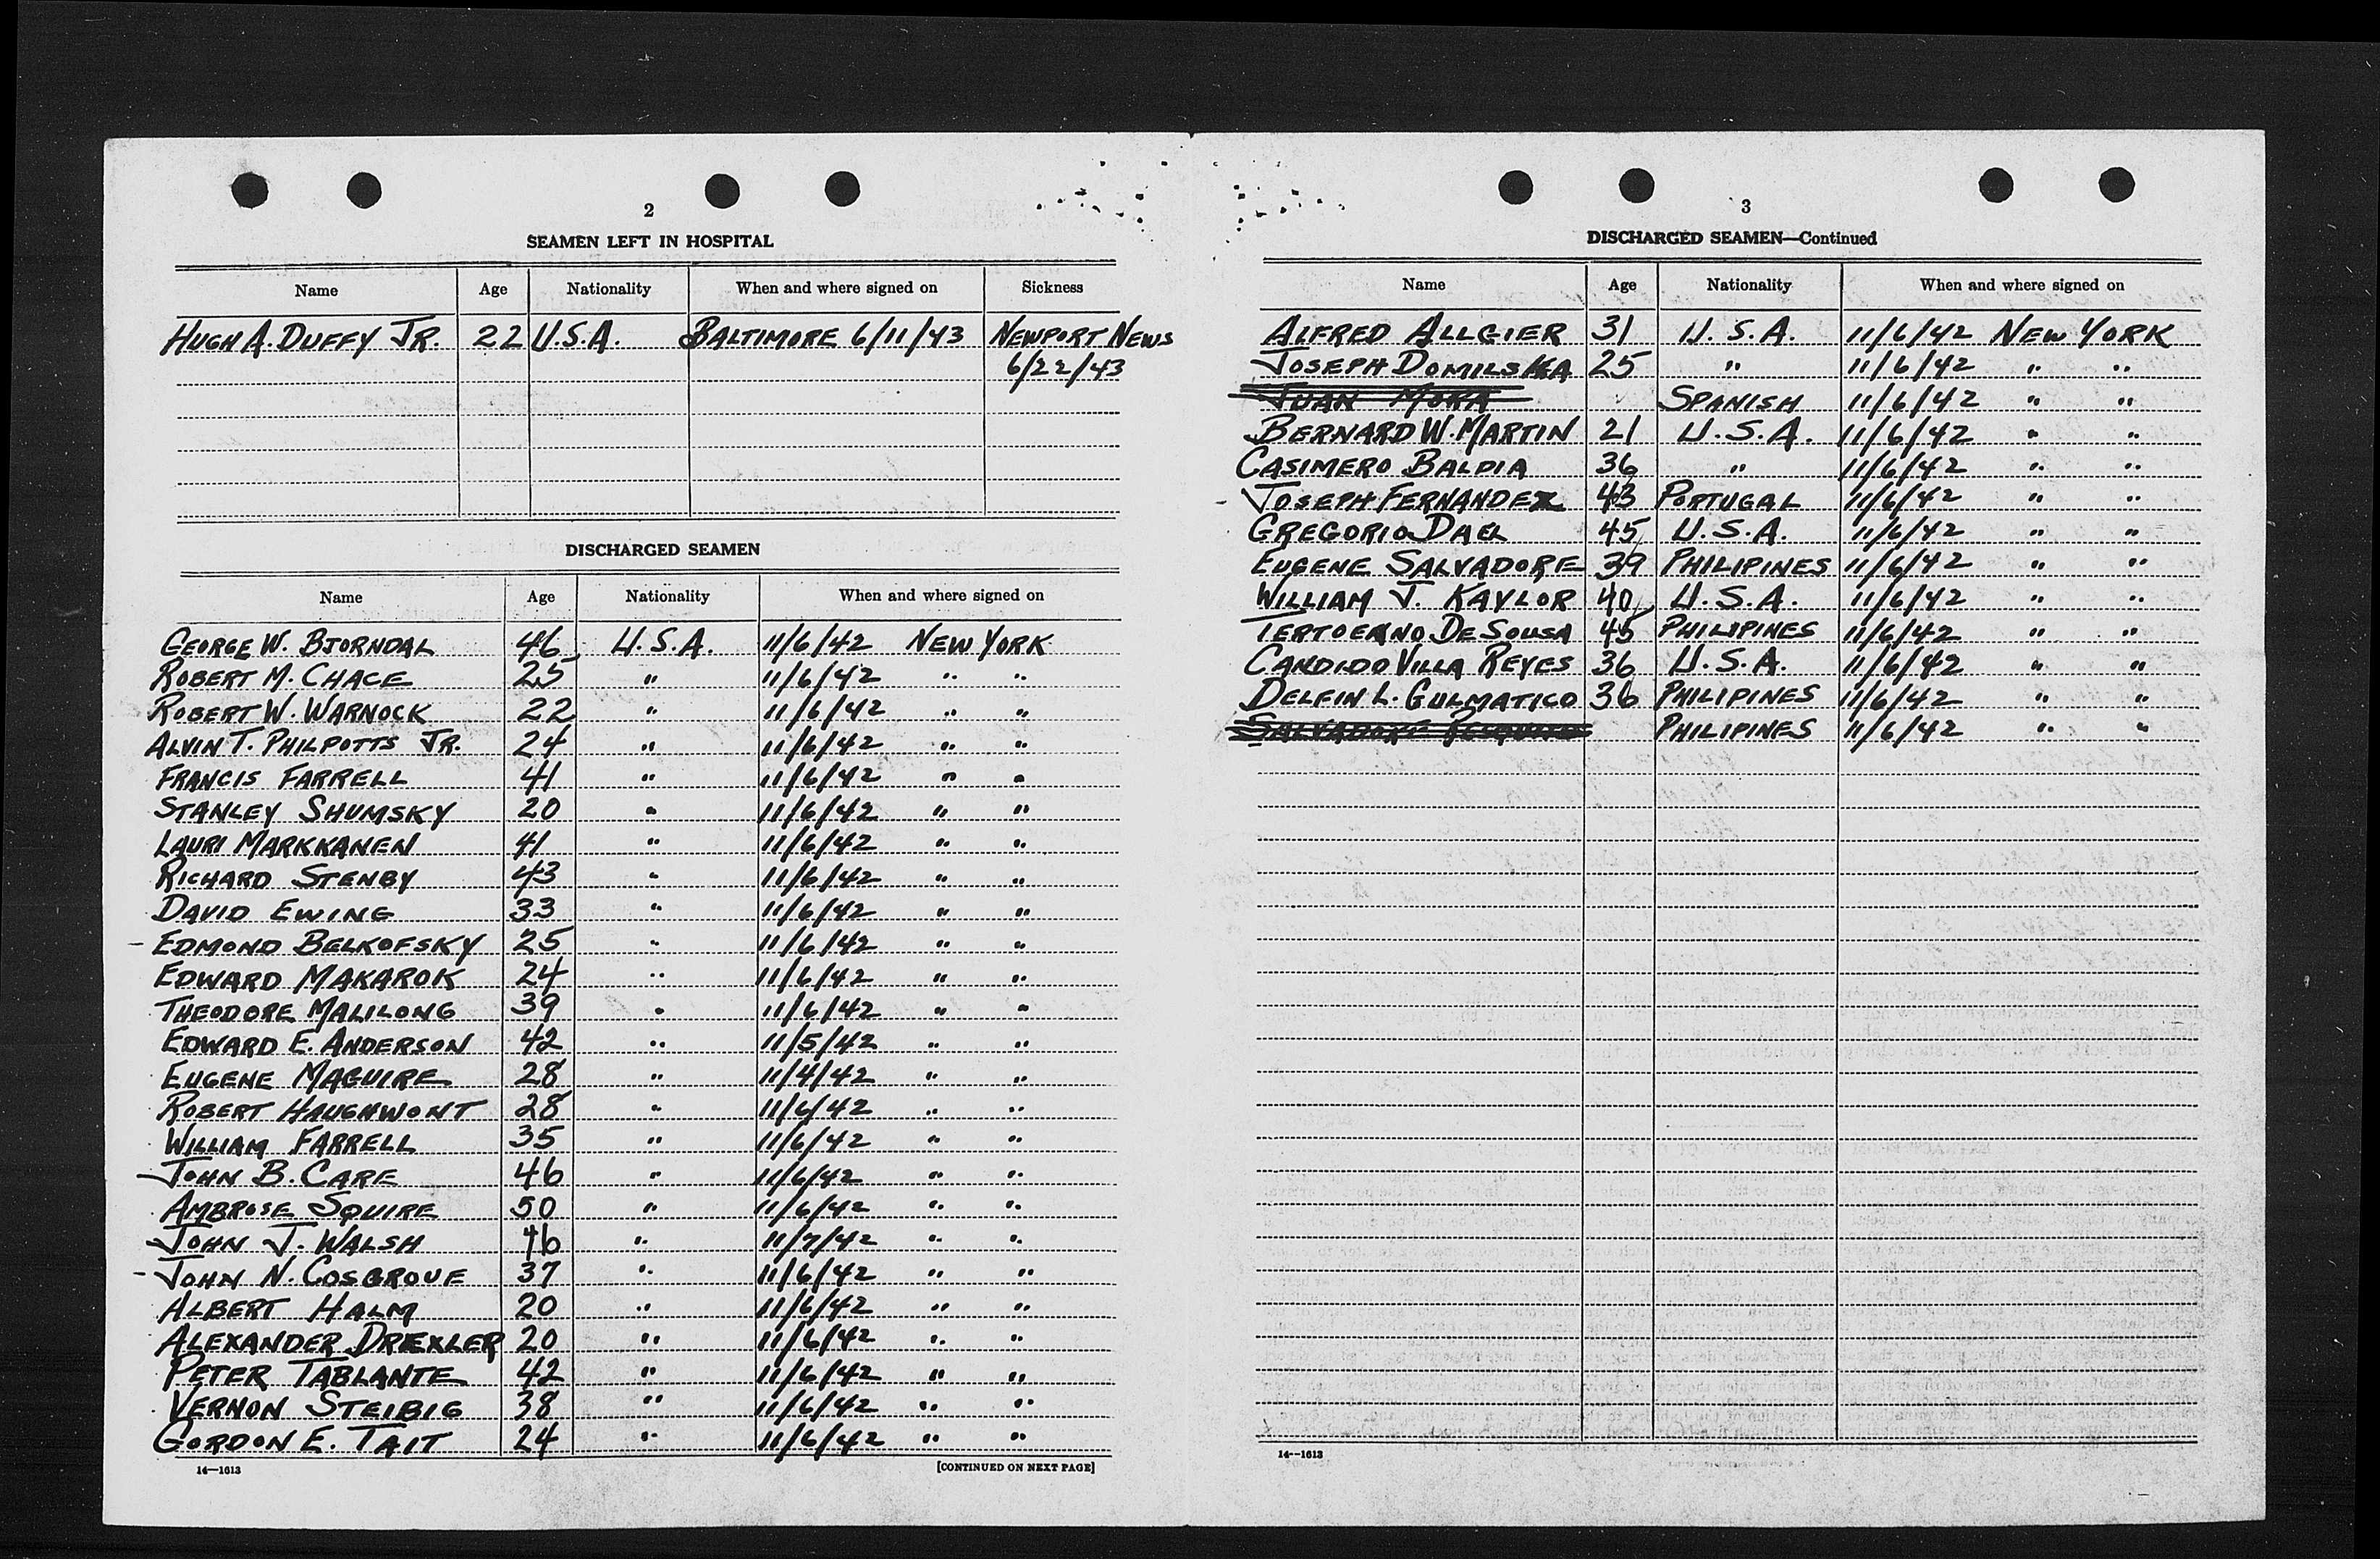 2
SEAMEN LEFT IN HOSPITAL
Name Age Nationality When and where signed on Sickness
HUGH A. DUFFY JR. 22 U.S.A. BALTIMORE 6/11/43 NEWPORT NEWS
6/22/43
DISCHARGED SEAMEN
Name Age Nationality When and where signed on
GEORGE W. BJORNDAL 46 U.S.A. 11/6/42 NEW YORK
ROBERT M. CHACE 25 " 11/6/42 " "
ROBERT W. WARNOCK 22 " 11/6/42 " "
ALVIN T. PHILPOTTS JR. 24 " 11/6/42 " "
FRANCIS FARRELL 41 " 11/6/42 " "
STANLEY SHUMSKY 20 " 11/6/42 " "
LAURI MARKKANEN 41 " 11/6/42 " "
RICHARD STENBY 43 " 11/6/42 " "
DAVID EWING 33 " 11/6/42 " "
- EDMOND BELKOFSKY 25 " 11/6/42 " "
EDWARD MAKAROK 24 " 11/6/42 " "
THEODORE MALILONG 39 " 11/6/42 " "
EDWARD E. ANDERSON 42 " 11/5/42 " "
EUGENE MAGUIRE 28 " 11/4/42 " "
ROBERT HAUGHWONT 28 " 11/6/42 " "
WILLIAM FARRELL 35 " 11/6/42 " "
JOHN B. CARE 46 " 11/6/42 " "
AMBROSE SQUIRE 50 " 11/6/42 " "
JOHN J. WALSH 46 " 11/7/42 " "
- JOHN N. COSGROVE 37 " 11/6/42 " "
ALBERT HALM 20 " 11/6/42 " "
ALEXANDER DREXLER 20 " 11/6/42 " "
PETER TABLANTE 42 " 11/6/42 " "
VERNON STEIBIG 38 " 11/6/42 " "
GORDON E. TAIT 24 " 11/6/42 " "
14—1613 [CONTINUED ON NEXT PAGE]
3
DISCHARGED SEAMEN—Continued
Name Age Nationality When and where signed on
ALFRED ALLGIER 31 U.S.A. 11/6/42 NEW YORK
JOSEPH DOMILSKA 25 " 11/6/42 " "
JUAN MORA SPANISH 11/6/42 " "
BERNARD W. MARTIN 21 U.S.A. 11/6/42 " "
CASIMERO BALDIA 36 " 11/6/42 " "
- JOSEPH FERNANDEZ 43 PORTUGAL 11/6/42 " "
GREGORIO DAEL 45 U.S.A. 11/6/42 " "
EUGENE SALVADORE 39 PHILIPINES 11/6/42 " "
WILLIAM J. KAYLOR 40 U.S.A. 11/6/42 " "
DE SOUSA 45 PHILIPINES 11/6/42 " "
CANDIDO VILLA REYES 36 U.S.A. 11/6/42 " "
DELFIN L. GULMATICO 36 PHILIPINES 11/6/42 " "
SALVADORE PHILIPINES 11/6/42 " "
14—1613